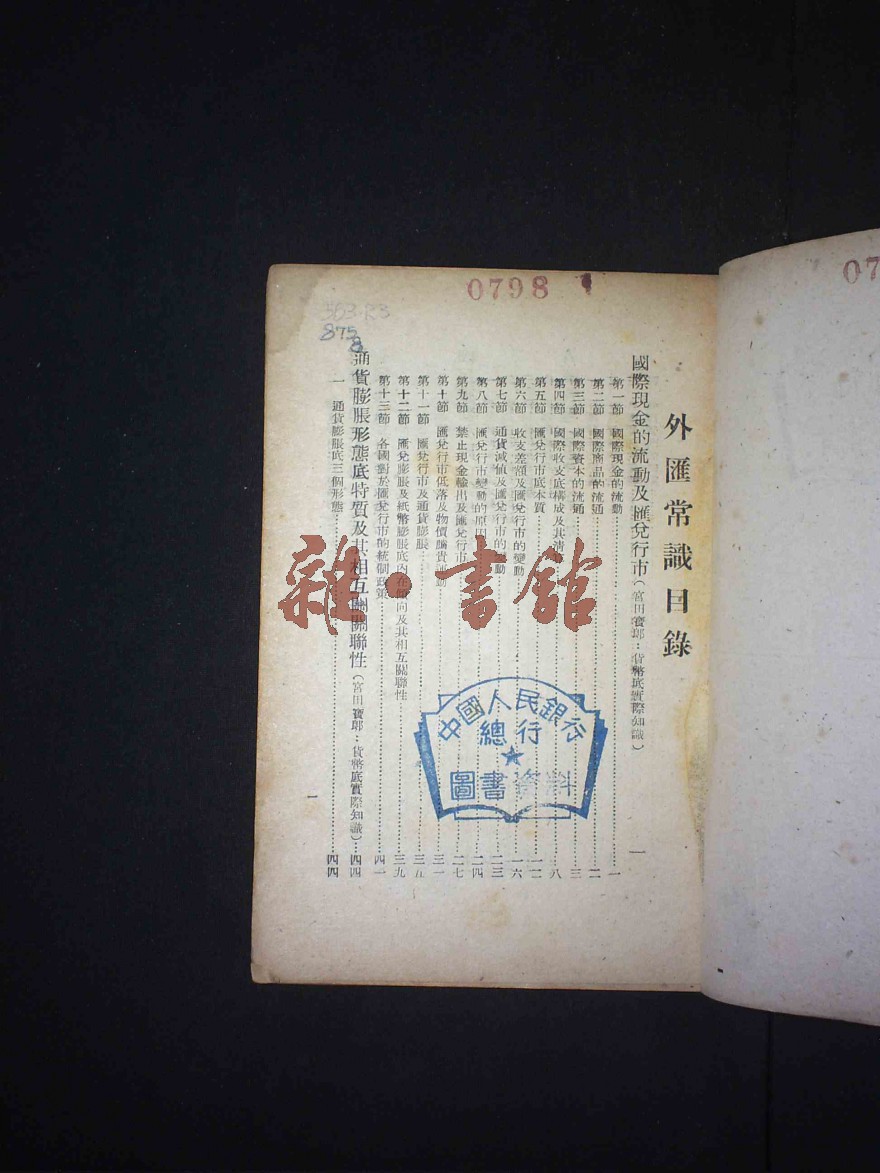 0798
07
563·R3
875
8
外匯常識目錄
國際現金的流動及匯兌行市(宮田寶郎:貨幣底實際知識)……一
第一節 國際現金的流動……一
第二節 國際商品的流通……二
第三節 國際資本的流通……三
第四節 國際收支底構成及其清……八
第五節 匯兌行市底本質……一二
第六節 收支差額及匯兌行市的變動……一六
第七節 通貨減値及匯兌行市的變動……二三
第八節 匯兌行市變動的原因……二四
第九節 禁止現金輸出及匯兌行市……二七
第十節 匯兌行市低落及物價騰貴……動……三一
第十一節 匯兌行市及通貨膨脹……三五
第十二節 匯兌膨脹及紙幣膨脹底內在傾向及其相互關聯性……三九
第十三節 各國對於匯兌行市的統制政策……四一
通貨膨脹形態底特質及其相互關聯性(宮田寶郎:貨幣底實際知識)……四四
一 通貨膨脹底三個形態……四四
一
中國人民銀行
總行
圖書資料
雜·書館